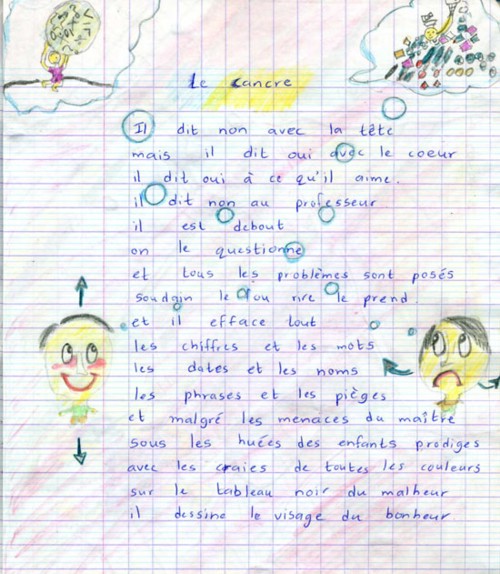 Le cancre
Il dit non avec la tête
mais il dit oui avec le coeur
il dit oui à ce qu'il aime.
il dit non au professeur
il est debout
on le questionne
et tous les problèmes sont posés
soudain le fou rire le prend.
et il efface tout
les chiffres et les mots
les dates et les noms
les phrases et les pièges
et malgré les menaces du maître
sous les huées des enfants prodiges
avec les craies de toutes les couleurs
sur le tableau noir du malheur
il dessine le visage du bonheur.